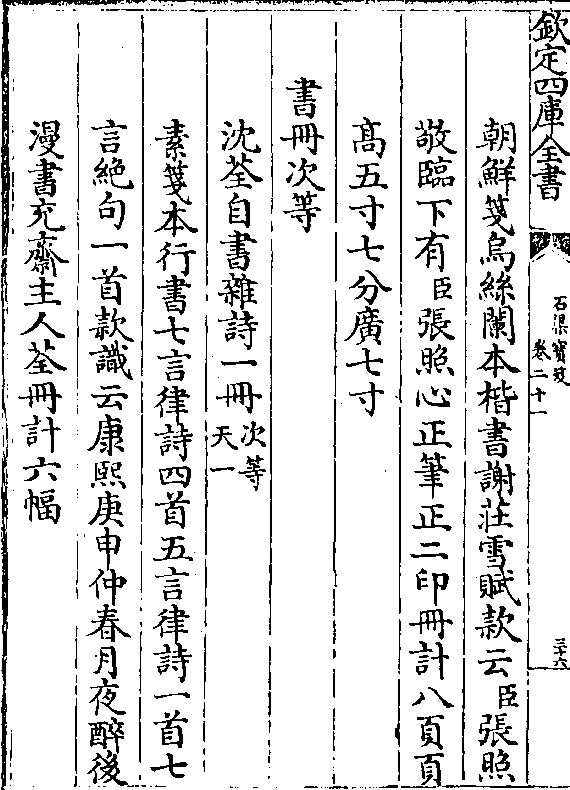 欽定四庫全書
石渠寶笈
卷二十一
三十六
朝鮮箋烏絲闌本楷書謝莊雪賦款云臣張照
敬臨下有臣張照心正筆正二印冊計八頁頁
高五寸七分廣七寸
書冊次等
沈荃自書雜詩一冊次等天一
素箋本行書七言律詩四首五言律詩一首七
言絶句一首款識云康熙庚申仲春月夜醉後
漫書充齋主人荃冊計六幅